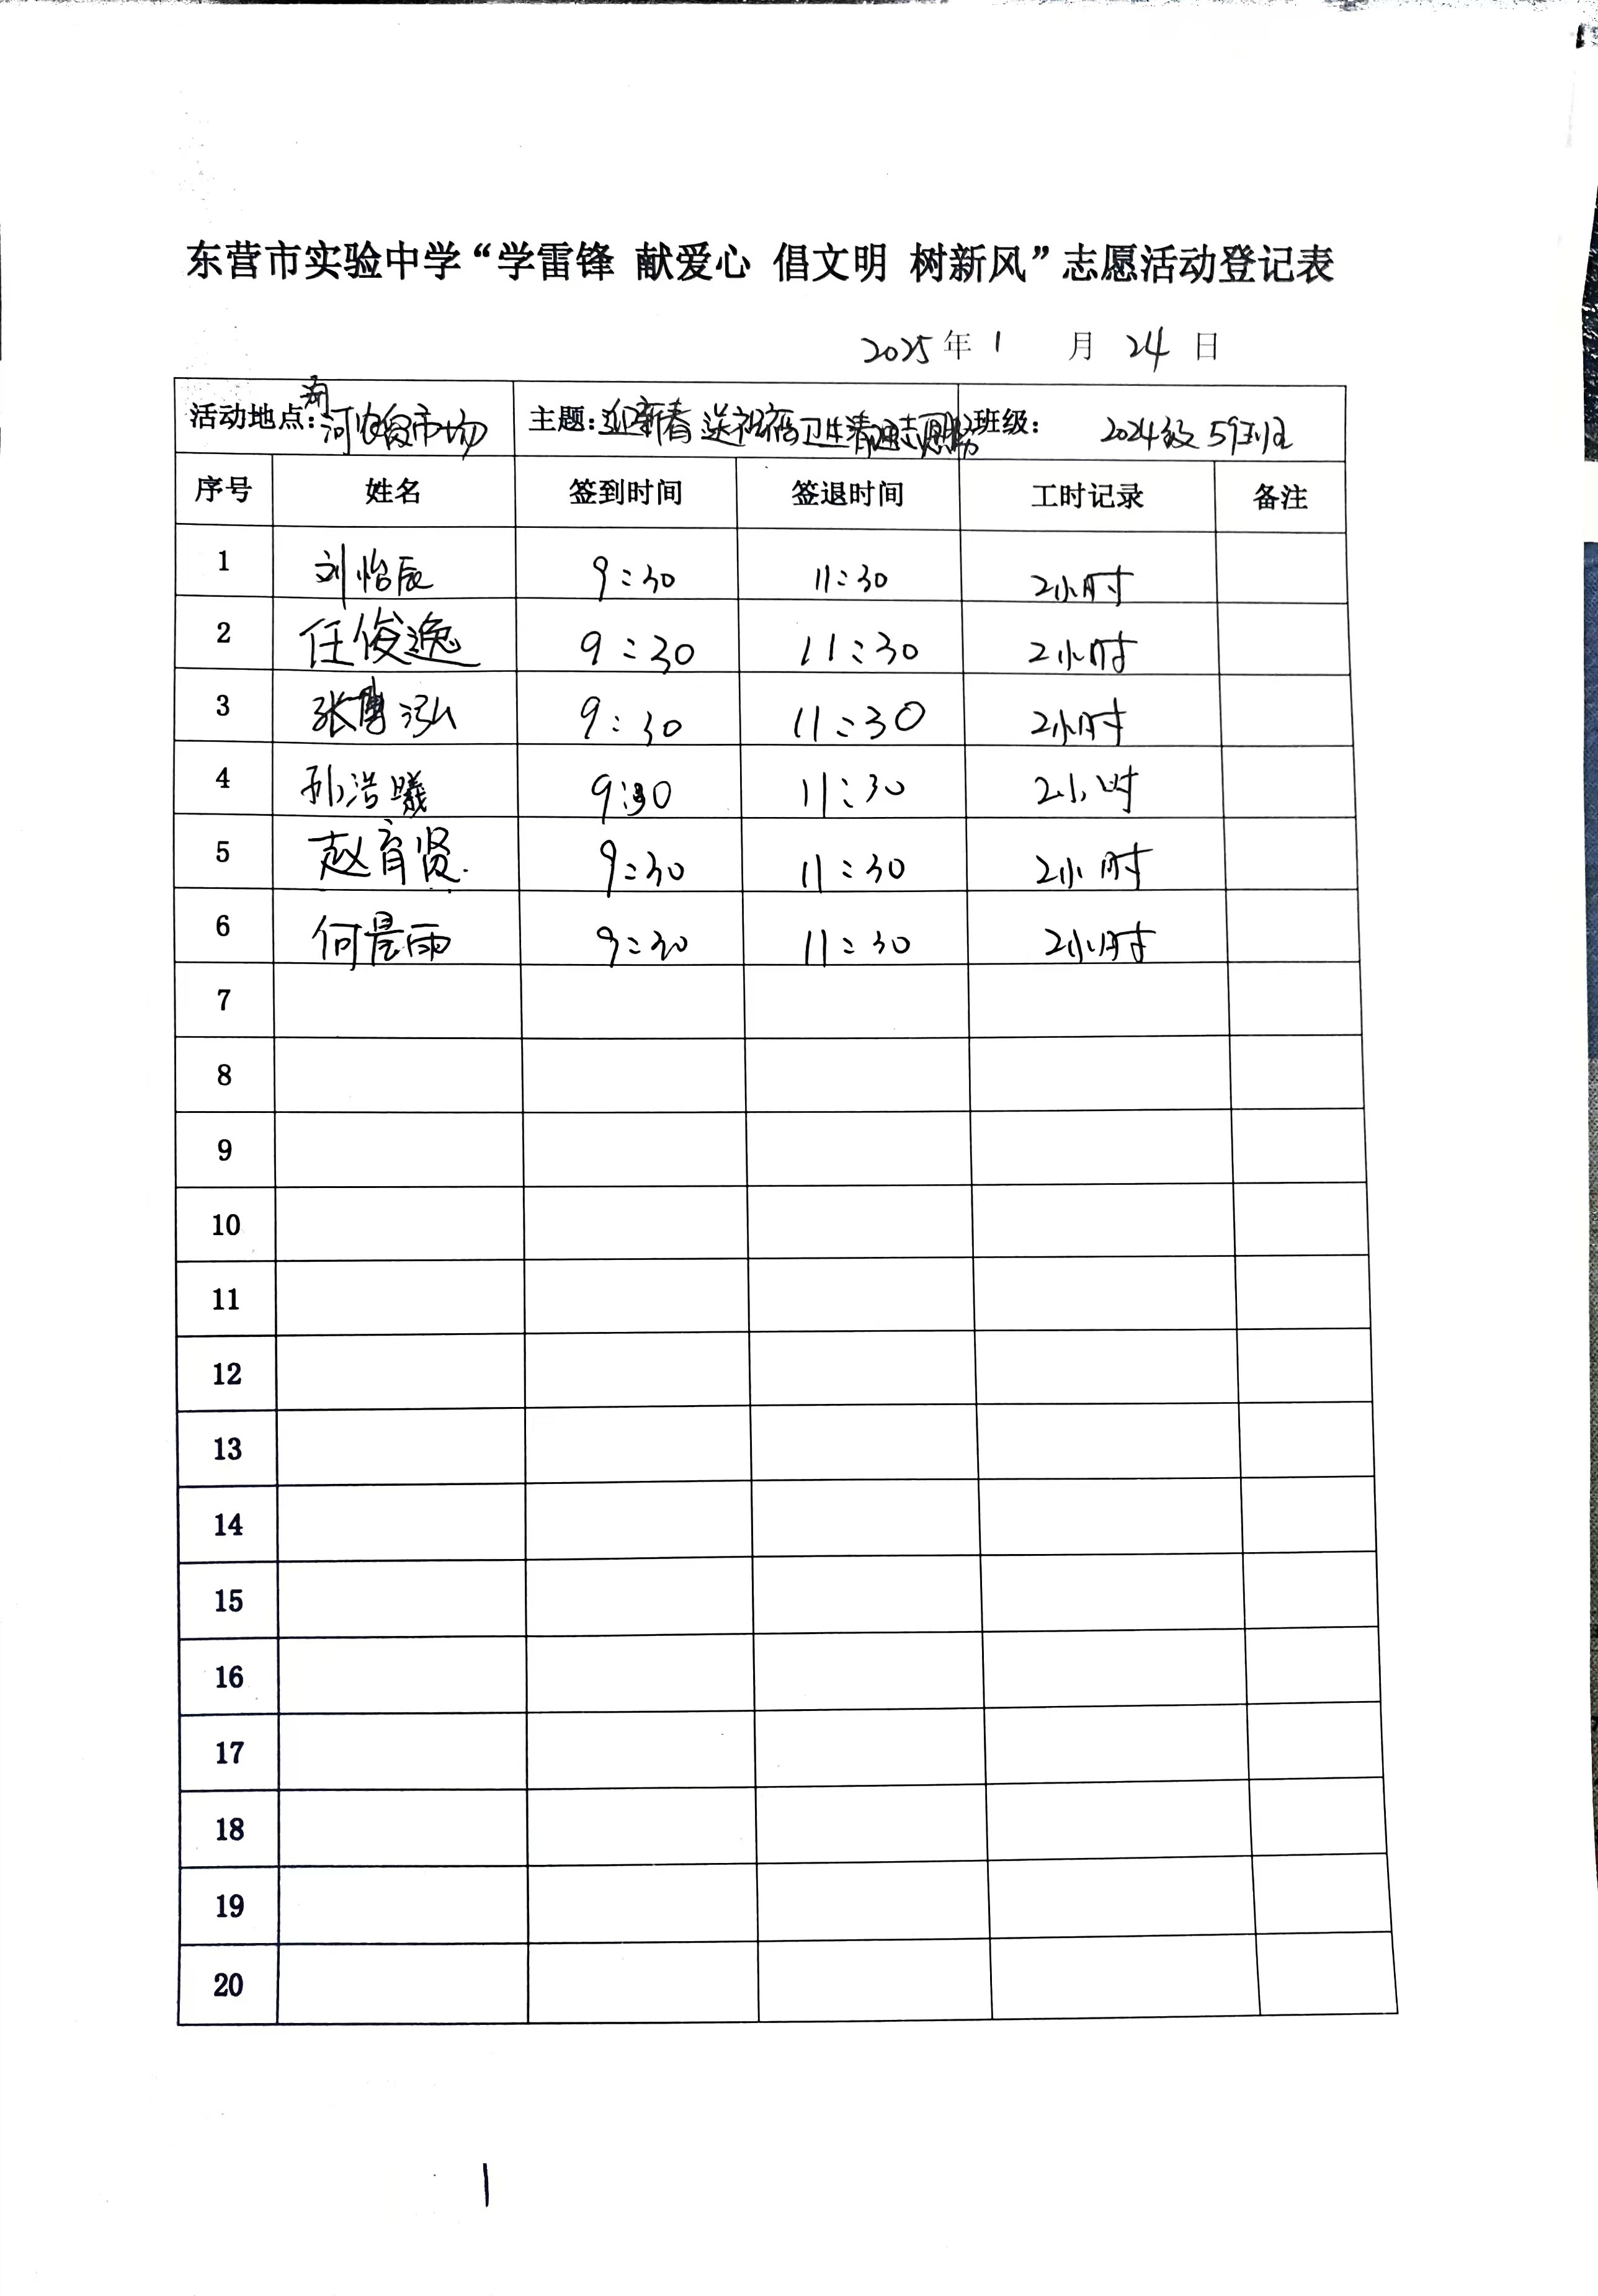 东营市实验中学“学雷锋 献爱心 倡文明 树新风”志愿活动登记表
2025年1月24日
活动地点: 河 市场 主题: 迎新春 送祝福 卫生清 志愿 班级: 2024级59班
序号 姓名 签到时间 签退时间 工时记录 备注
1 刘怡辰 9:30 11:30 2小时
2 任俊逸 9:30 11:30 2小时
3 张博泓 9:30 11:30 2小时
4 孙浩曦 9:30 11:30 2小时
5 赵育贤 9:30 11:30 2小时
6 何晨雨 9:30 11:30 2小时
7
8
9
10
11
12
13
14
15
16
17
18
19
20